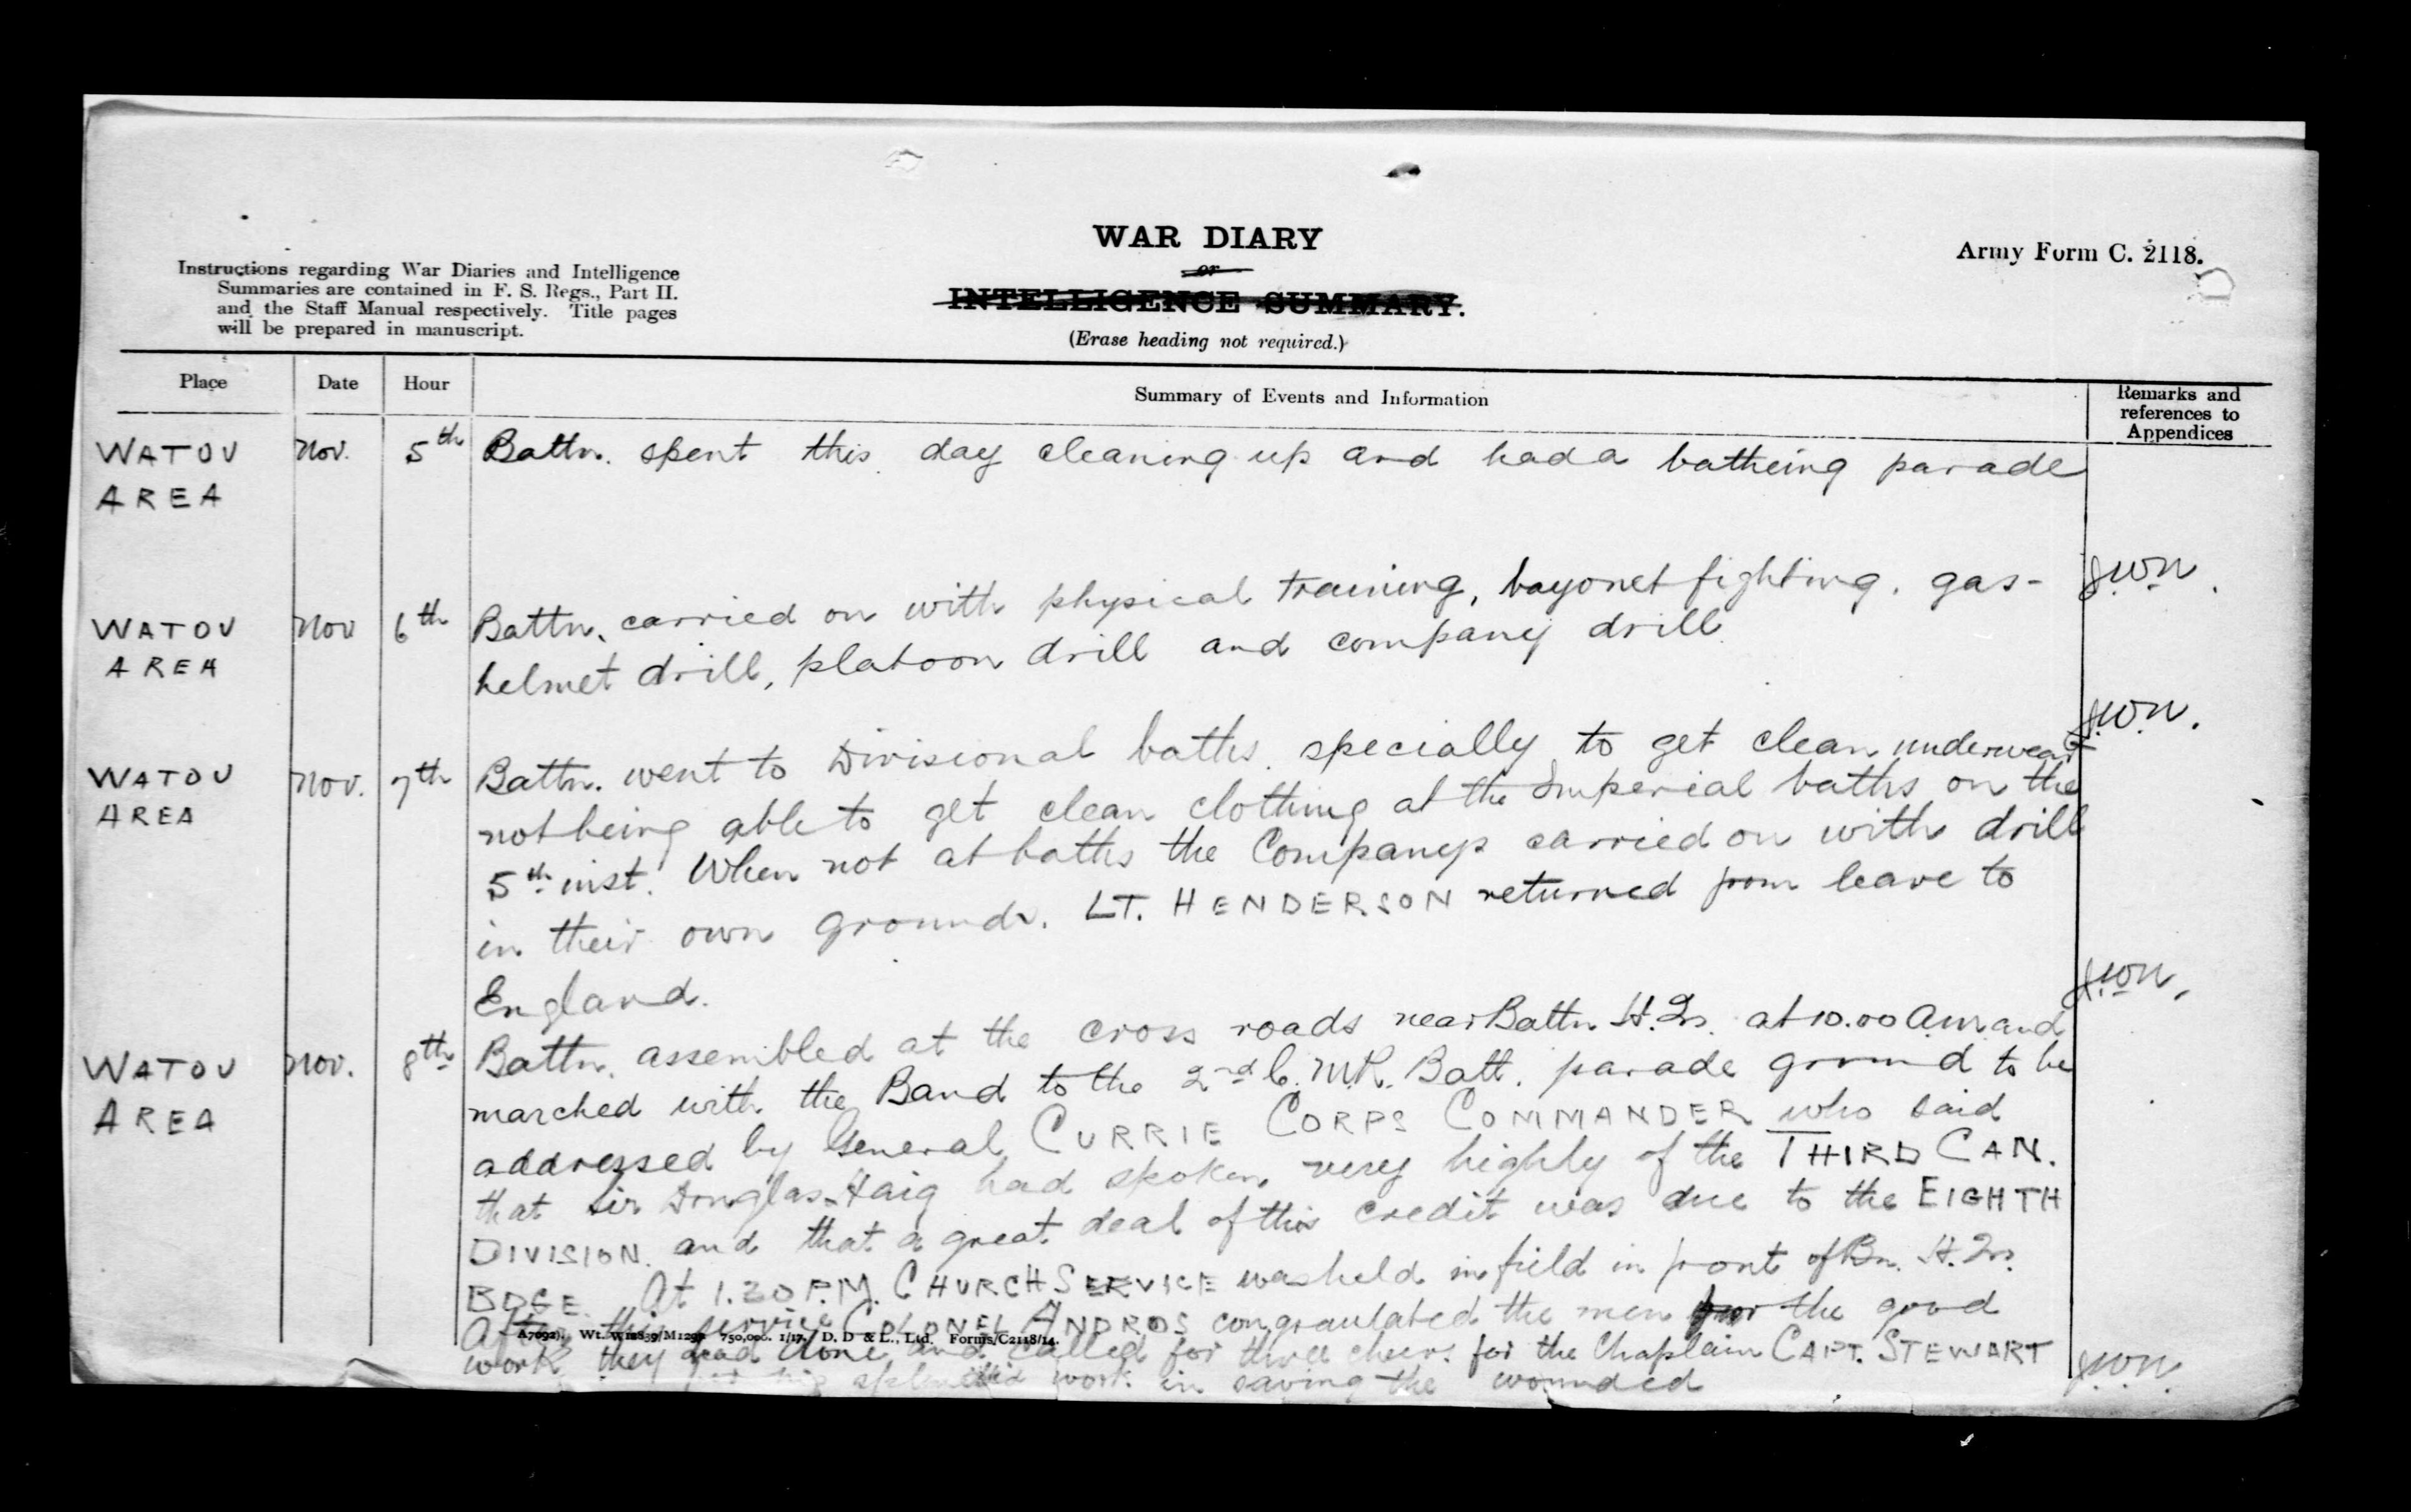 WAR DIARY
or
INTELLIGENCE SUMMARY.
(Erase heading not required.)
Army Form C. 2118.
Instructions regarding War Diaries and Intelligence
Summaries are contained in F. S. Regs., Part II.
and the Staff Manual respectively. Title pages
will be prepared in manuscript.
Place Date Hour Summary of Events and Information Remarks and references to Appendices
WATOU AREA Nov. 5th Battn. spent this day cleaning up and had a batheing parade
J.W.N.
WATOU AREA Nov 6th Battn. carried on with physical training, bayonet fighting, gas-
helmet drill, platoon drill and company drill.
J.W.N.
WATOU AREA Nov. 7th Battn. went to Divisional baths specially to get clean underwear
not being able to get clean clothing at the Imperial baths on the
5th inst. When not at baths the Companys carried on with drill
in their own grounds. LT. HENDERSON returned from leave to
England.
J.W.N.
WATOU AREA Nov. 8th Battn. assembled at the cross roads near Battn H.Qrs. at 10.00 A.M. and
marched with the Band to the 2nd C.M.R. Batt. parade ground to be
addressed by General CURRIE CORPS COMMANDER who said
that Sir Douglas Haig had spoken very highly of the THIRD CAN.
DIVISION and that a great deal of this credit was due to the EIGHTH
BDGE. At 1.30 P.M. CHURCH SERVICE was held in field in front of Bn. H.Qrs.
After this service COLONEL ANDROS congraulated the men for the good
work they had done and called for three cheers for the Chaplain CAPT. STEWART
his splendid work in saving the wounded
J.W.N.
A7092). Wt. W12839/M1293 750,000. 1/17. D. D & L., Ltd. Forms/C2118/14.